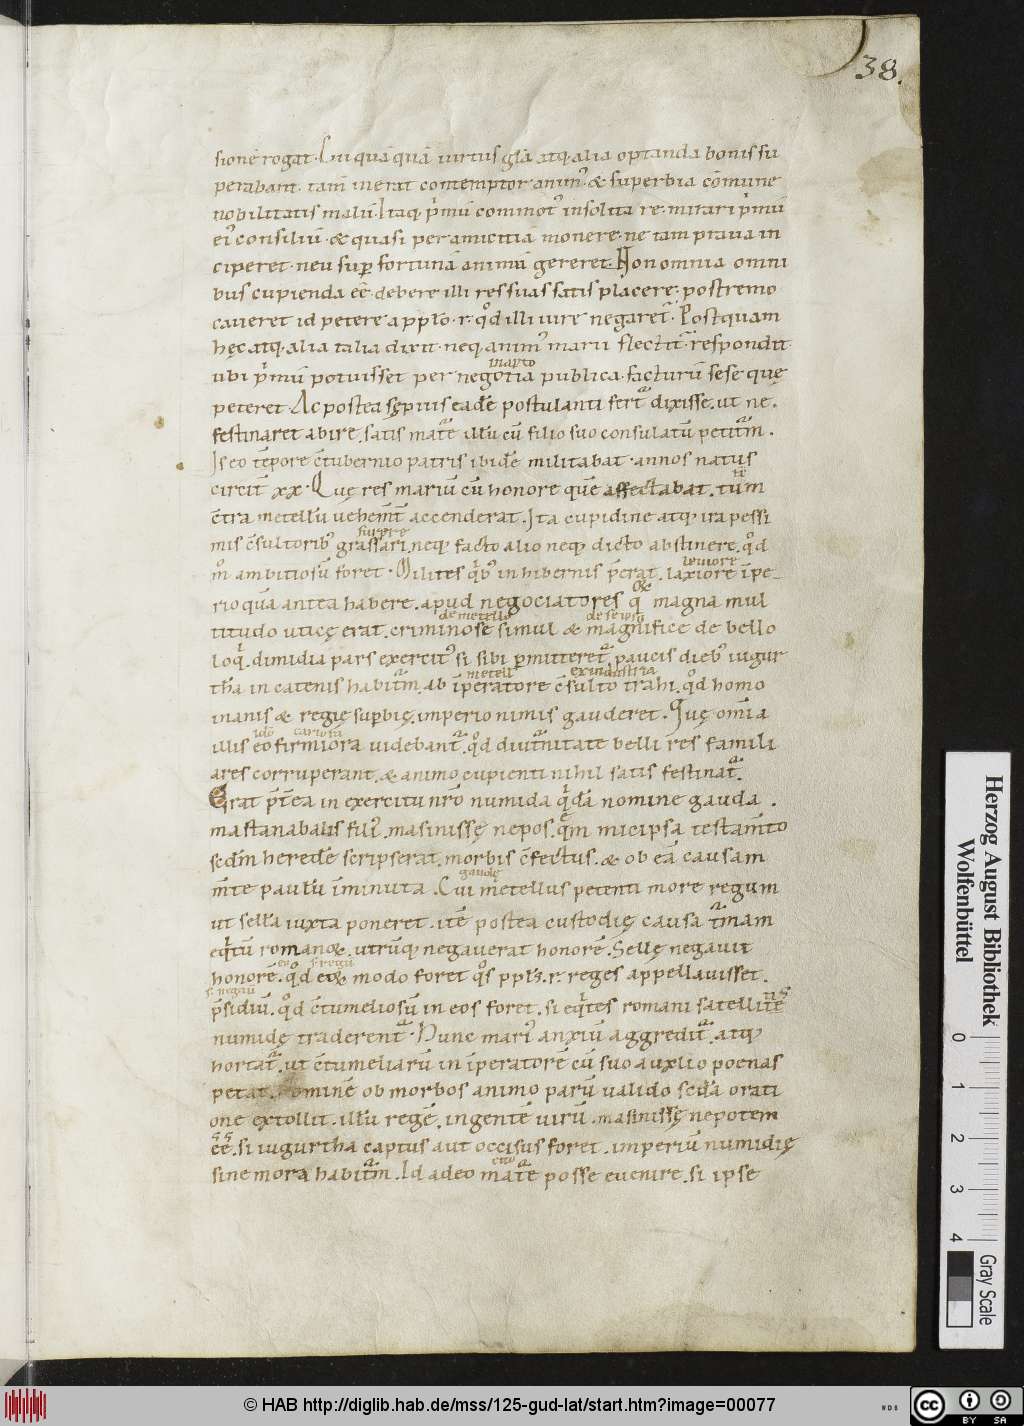 38.
sionē rogat. Cui quāquā uirtus gl̄a atq; alia optanda bonis su
perabant. tam̄ inerat contemptor anim᾽ & superbia cōmune
nobilitatis malū. Itaq; p̄mū commot᾽ insolita re. mirari p̄mū
ei᾽ consiliū. & quasi per amicitiā monere. ne tam praua in
ciperet. neu sup fortunā animū gereret. Non omnia omni
bus cupienda eē. debere illi res suas satis placere. postremo
caueret id petere a pplo. r. qd illi iure negaret᾽. Postquam
hęc atq; alia talia dixit. neq; anim᾽ marii flectit᾽. respondit
ubi p̄mū potuisset per negotia publica. facturū sese quę
peteret. Ac postea sępius eadē postulanti fert᾽ dixisse. ut ne
festinaret abire. satis mat̄e illū cū filio suo consulatū petit᾽m.
Is eo tēpore c̄tubernio patris ibidē militabat. annos natus
circit̄ xx. Quę res mariū cū honore quē affectabat. tum
c̄tra metellū uehem̄t accenderat. Ita cupidine atq; ira pessi
mis c̄sultorib᾽ grassari. neq; facto alio neq; dicto abstinere. qd
m̊ ambitiosū foret. Milites qb᾽ in hibernis p̄erat. laxiore īpe
rio quā antea habere. apud negociatores q̄ magna mul
titudo uticę erat. criminose simul & magnifice de bello
loqi. dimidia pars exercit᾽ si sibi pmitteret᾽. paucis dieb᾽ iugur
thā in catenis habit᾽m. ab īperatore c̄sulto trahi. qd homo
inanis & regię supbię. imperio nimis gauderet. Quę om̄ia
illis eo firmiora uidebant᾽. qd diut᾽nitate belli res famili
ares corruperant. & animo cupienti nihil satis festinat᾽.
Erat p̄t̄ea in exercitu nr̄o numida qdā nomine gauda.
mastanabalis fili᾽. masinissę nepos. qm micipsa testam̄to
secdm heredē scripserat. morbis c̄fectus. & ob eā causam
m̄te paulū īminuta. Cui metellus petenti more regum
ut sellā iuxta poneret. itē postea custodię causa t᾽mam
eqtū romano&. utrūq; negauerat honorē. Sellę negauit
honorē. qd eo& modo foret qs pplꝰ. r. reges appellauisset.
p̄sidiū. qd c̄tumeliosū in eos foret. si eqtes romani satellite
numidę traderent᾽. Hunc mari᾽ anxiū aggredit᾽. atq;
hortat᾽. ut c̄tumeliarū in īperatorē cū suo auxlio poenas
petat. Hominē ob morbos animo parū ualido secdā orati
one extollit. illū regē. ingentē uirū. masinissę nepotem
eē. si iugurtha captus aut occisus foret. imperiū numidię
sine mora habit᾽m. Id adeo mat̄e posse euenire. si ipse
Herzog August Bibliothek
Wolfenbüttel
0 1 2 3 4
Gray Scale
© HAB http://diglib.hab.de/mss/125-gud-lat/start.htm?image=00077
WDB
cc
BY SA